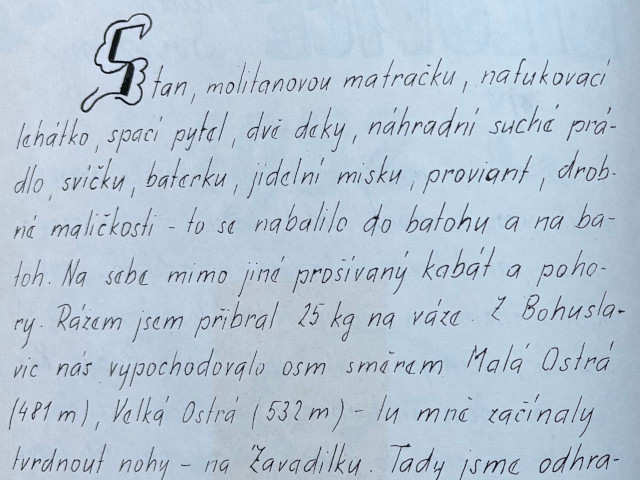 Stan, molitanovou matračku, nafukovací
lehátko, spací pytel, dvě deky, náhradní suché prá-
dlo, svíčku, baterku, jídelní misku, proviant, drob-
né maličkosti - to se nabalilo do batohu a na ba-
toh. Na sebe mimo jiné prošívaný kabát a poho-
ry. Rázem jsem přibral 25 kg na váze. Z Bohusla-
vic nás vypochodovalo osm směrem Malá Ostrá
(481 m), Velká Ostrá (532 m) - tu mně začínaly
tvrdnout nohy - na Zavadilku. Tady jsme odhra-